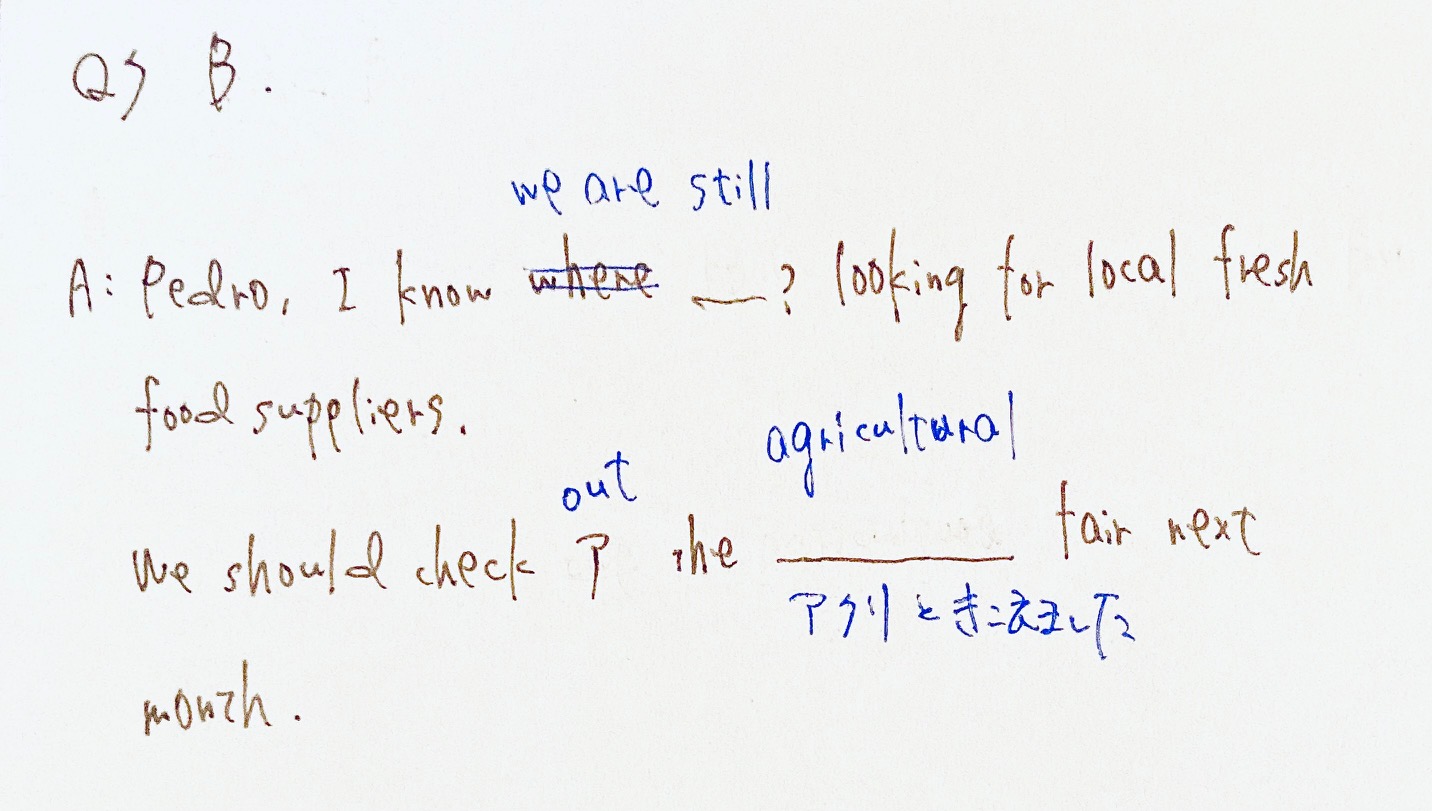 Q5 B.
we are still
A: Pedro, I know where __? looking for local fresh
food suppliers.
agricultural
out
We should check ? the ____ fair next
アグリときこえました
month.